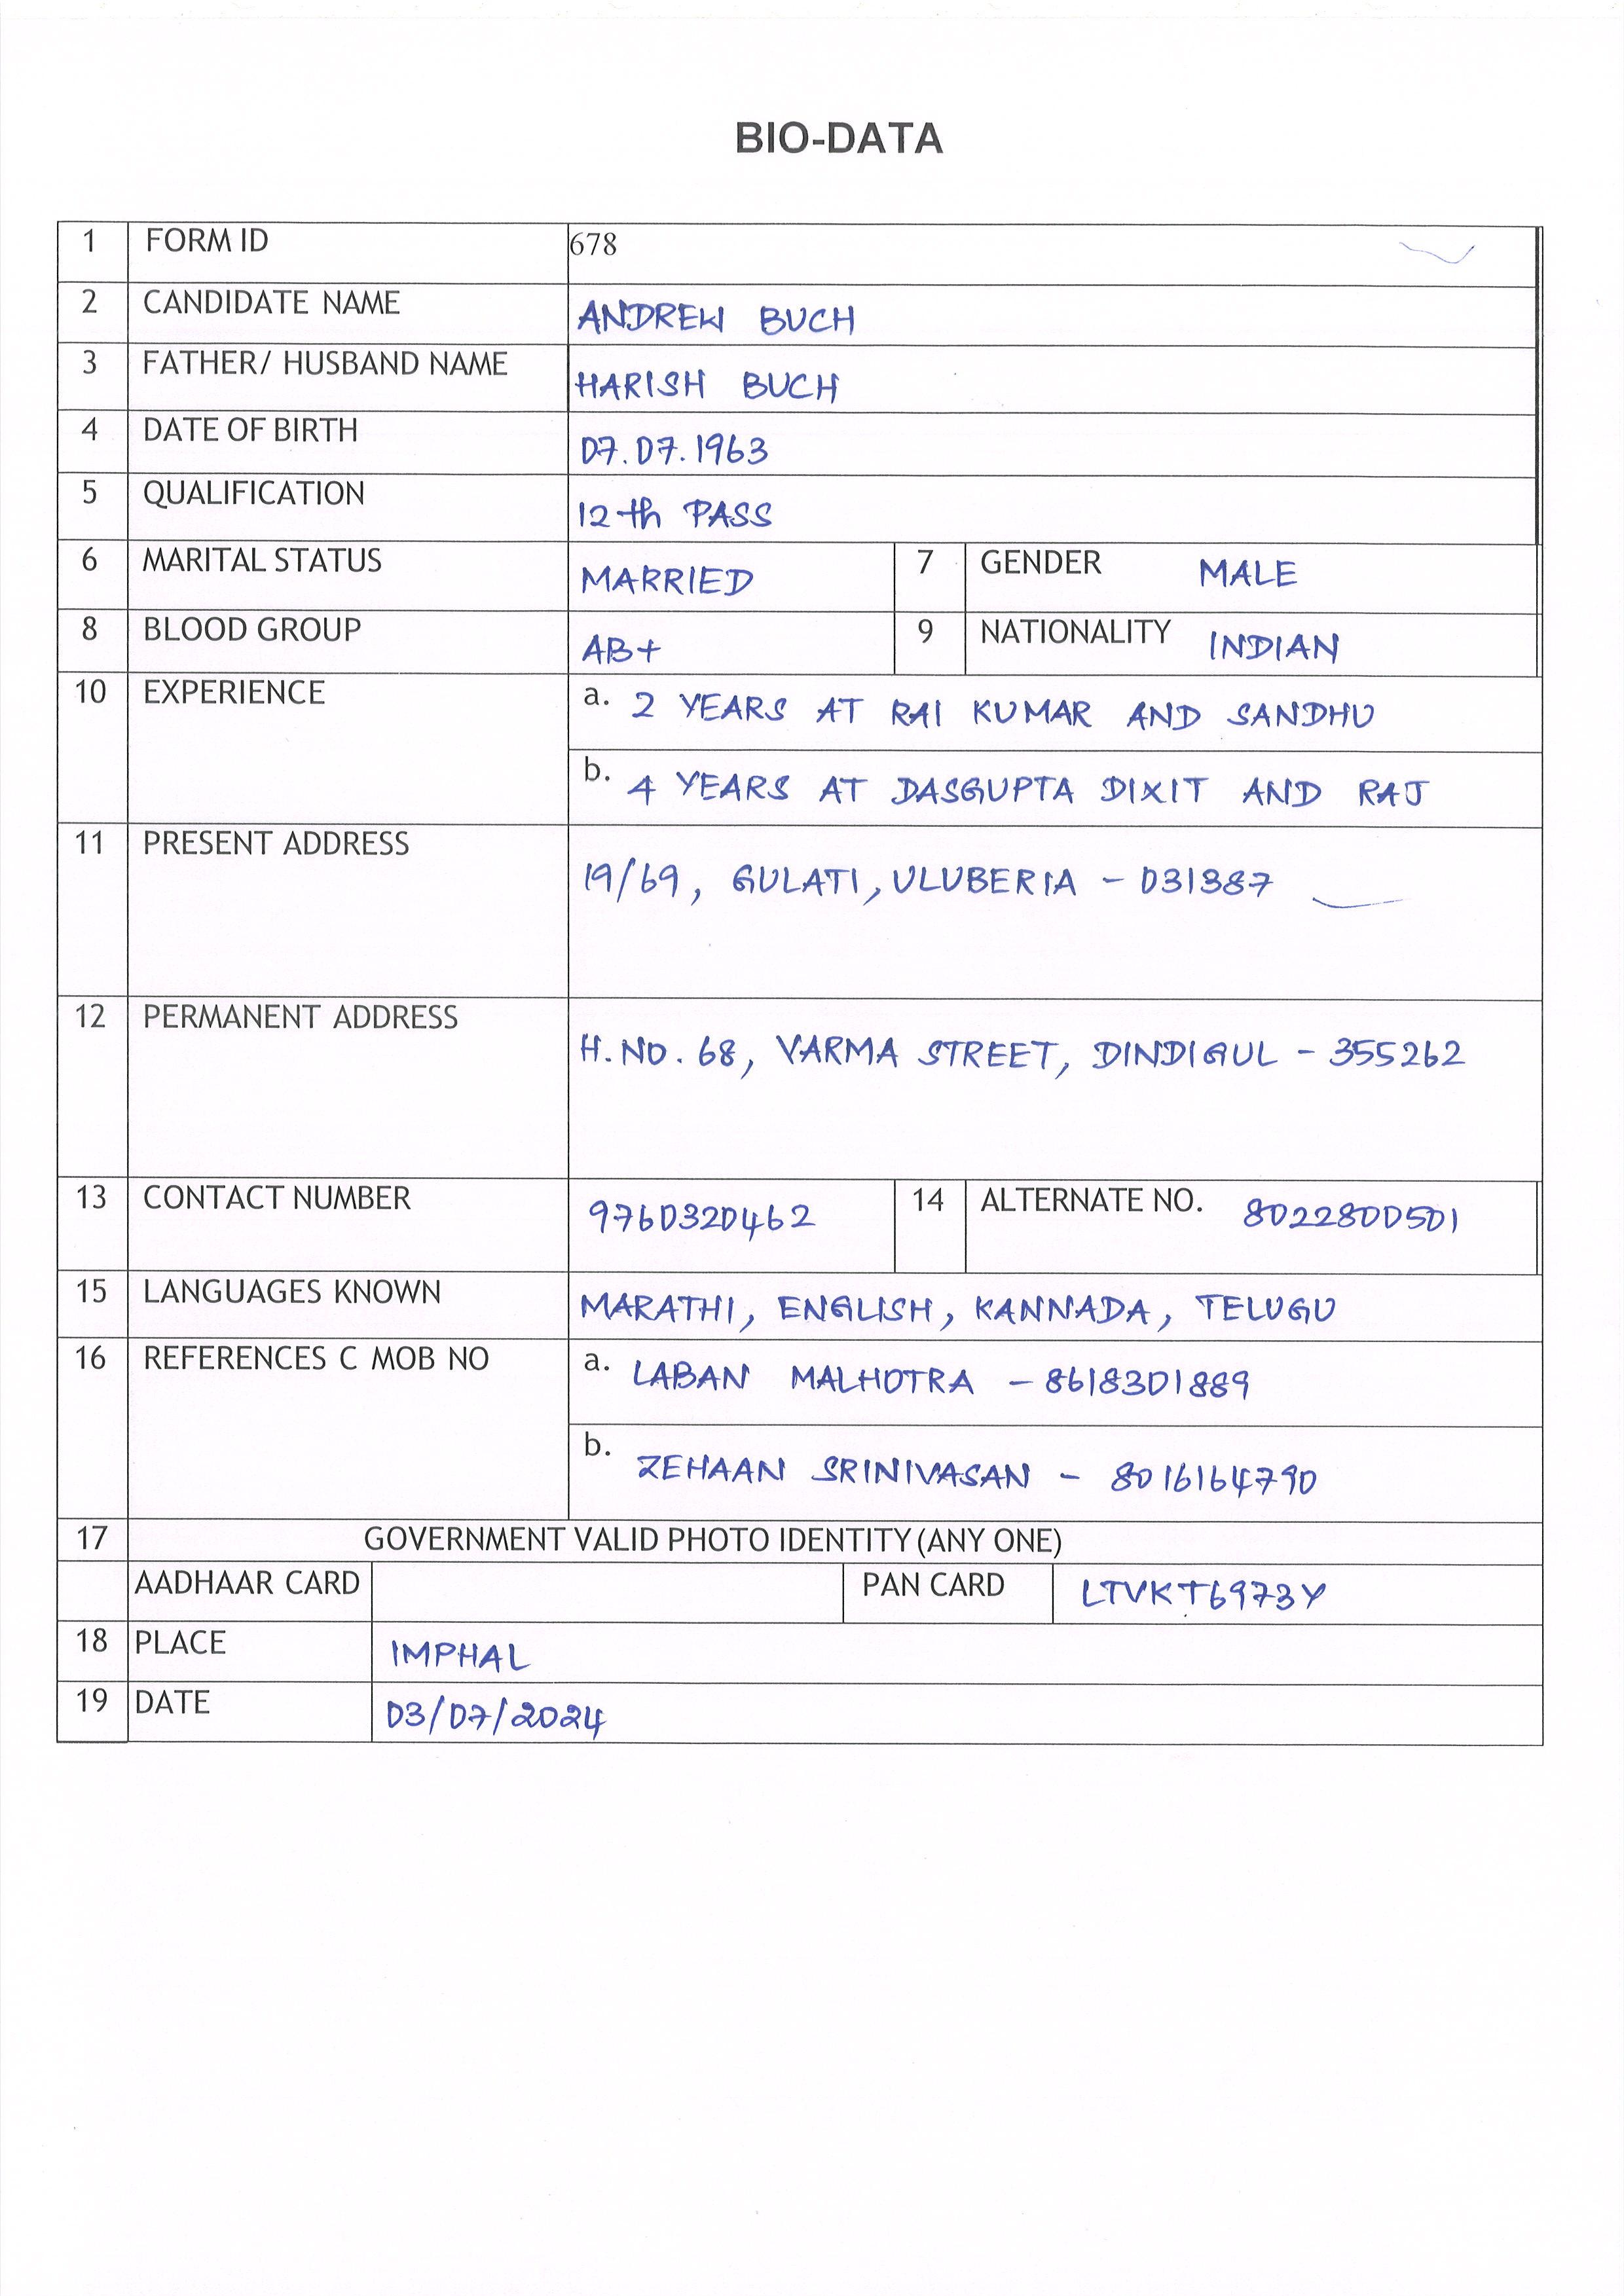 BIO-DATA
1 FORM ID 678
2 CANDIDATE NAME ANDREW BUCH
3 FATHER/ HUSBAND NAME HARISH BUCH
4 DATE OF BIRTH 07.07.1963
5 QUALIFICATION 12th PASS
6 MARITAL STATUS MARRIED 7 GENDER MALE
8 BLOOD GROUP AB+ 9 NATIONALITY INDIAN
10 EXPERIENCE a. 2 YEARS AT RAI KUMAR AND SANDHU
b. 4 YEARS AT DASGUPTA DIXIT AND RAJ
11 PRESENT ADDRESS 19/69, GULATI, ULUBERIA - 031387
12 PERMANENT ADDRESS H.NO. 68, VARMA STREET, DINDIGUL - 355262
13 CONTACT NUMBER 9760320462 14 ALTERNATE NO. 8022800501
15 LANGUAGES KNOWN MARATHI, ENGLISH, KANNADA, TELUGU
16 REFERENCES C MOB NO a. LABAN MALHOTRA - 8618301889
b. ZEHAAN SRINIVASAN - 8016164790
17 GOVERNMENT VALID PHOTO IDENTITY (ANY ONE)
AADHAAR CARD PAN CARD LTVKT6973Y
18 PLACE IMPHAL
19 DATE 03/07/2024